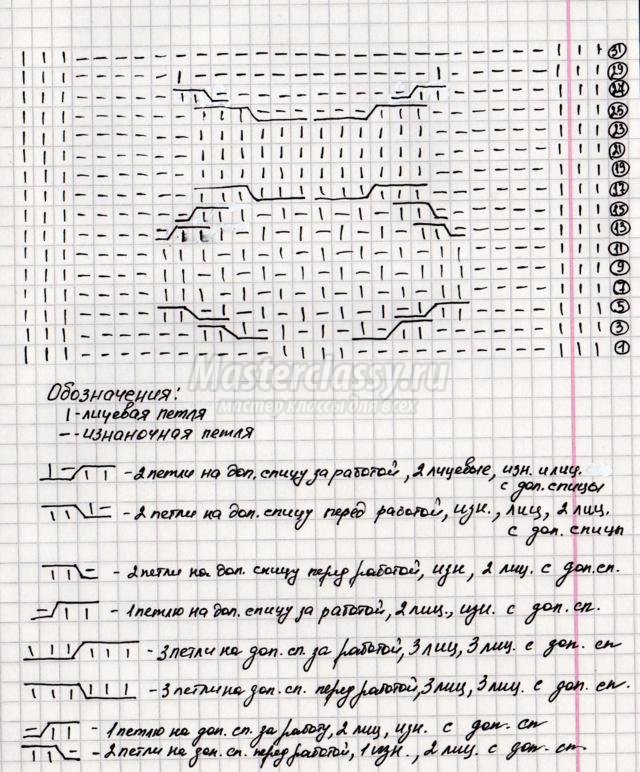 31
29
27
25
23
21
19
17
15
13
11
9
7
5
3
1
Masterclassy.ru
Мастер классы для всех
Обозначения:
| - лицевая петля
— - изнаночная петля
- 2 петли на доп. спицу за работой, 2 лицевые, изн. и лиц.
с доп. спицы
- 2 петли на доп. спицу перед работой, изн., лиц, 2 лиц.
с доп. спицы
- 2 петли на доп. спицу перед работой, изн, 2 лиц. с доп. сп.
- 1 петлю на доп. спицу за работой, 2 лиц., изн. с доп. сп.
- 3 петли на доп. сп. за работой, 3 лиц, 3 лиц. с доп. сп
- 3 петли на доп. сп. перед работой, 3 лиц, 3 лиц. с доп. сп.
- 1 петлю на доп. сп. за работу, 2 лиц, изн. с доп. сп
- 2 петли на доп. сп. перед работой, 1 изн., 2 лиц. с доп. сп